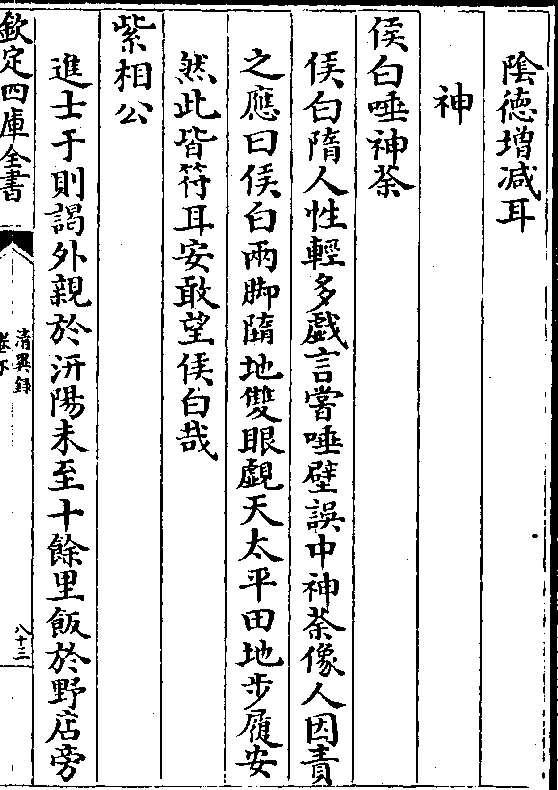 陰德增减耳
神
侯白唾神荼
侯白隋人性輕多戲言嘗唾壁誤中神荼像人因責
之應曰侯白兩脚隋地雙眼覷天太平田地步履安
然此皆符耳安敢望侯白哉
紫相公
進士于則謁外親於汧陽未至十餘里飯於野店旁
欽定四庫全書
清異錄
卷下
八十三